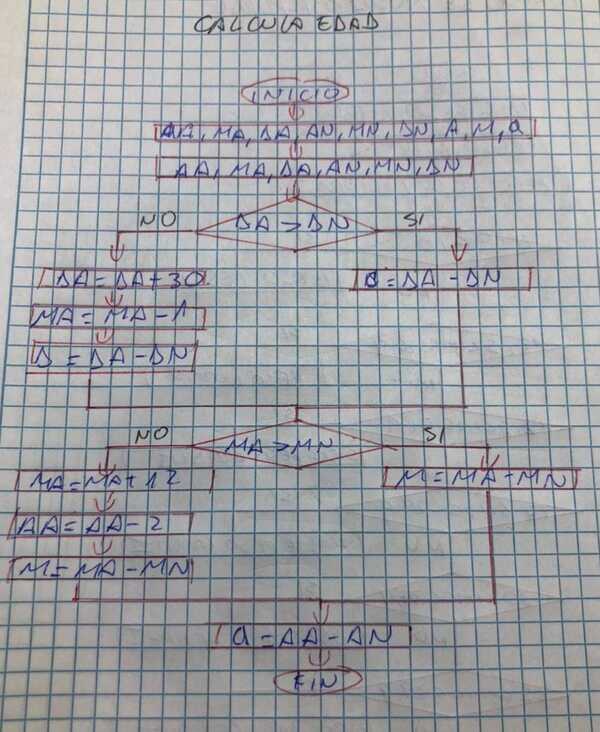 CALCULA EDAD
INICIO
AA, MA, DA, AN, MN, DN, A, M, a
AA, MA, DA, AN, MN, DN
NO DA > DN SI
DA = DA + 30 D = DA - DN
MA = MA - 1
D = DA - DN
NO MA > MN SI
MA = MA + 12 M = MA - MN
AA = AA - 2
M = MA - MN
a = AA - AN
FIN